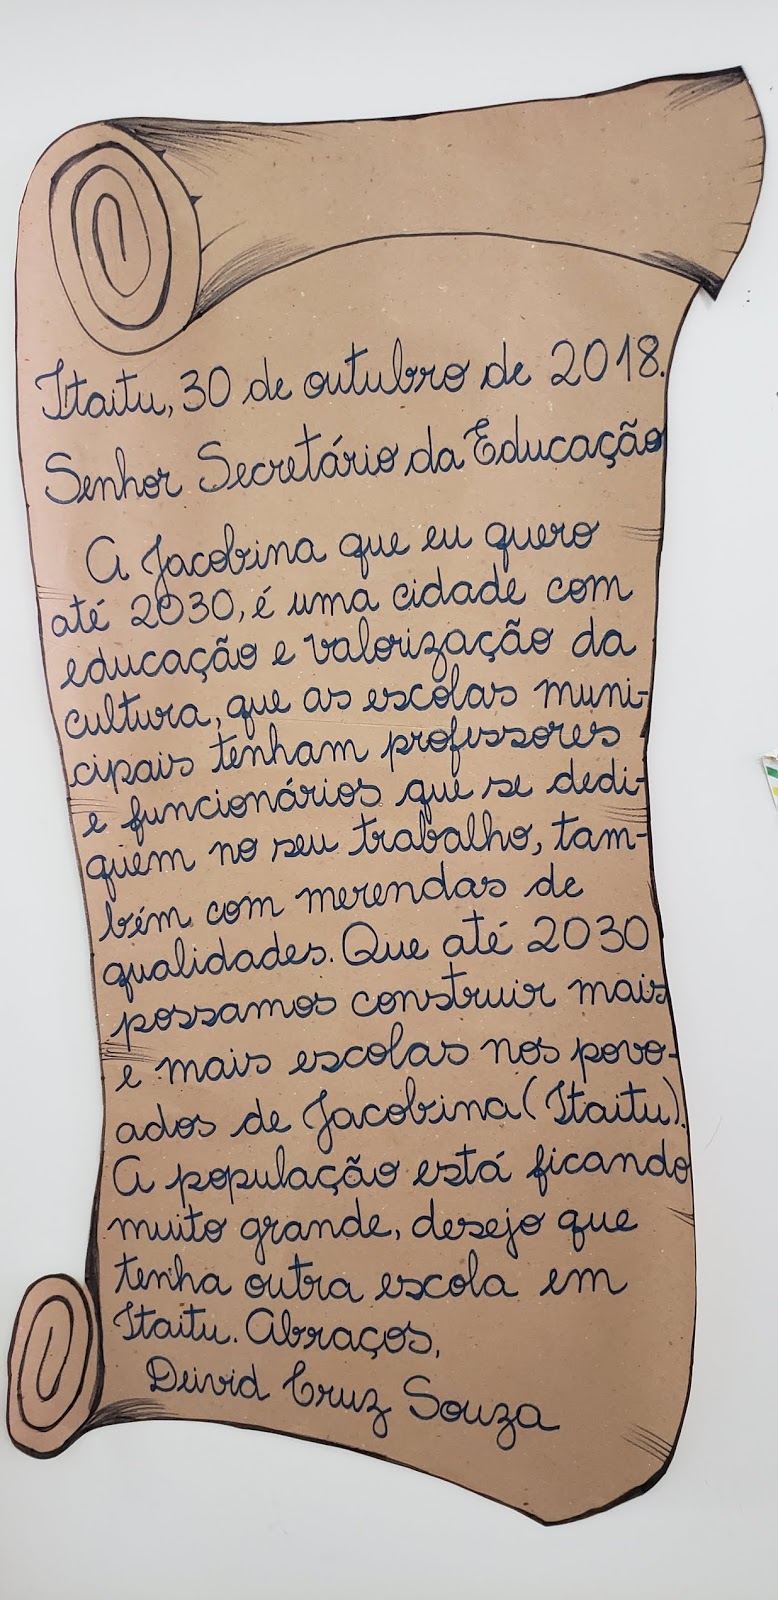 Itaitu, 30 de outubro de 2018.
Senhor Secretário da Educação
A Jacobina que eu quero
até 2030, é uma cidade com
educação e valorização da
cultura, que as escolas muni-
cipais tenham professores
e funcionários que se dedi-
quem no seu trabalho, tam-
bém com merendas de
qualidades. Que até 2030
possamos construir mais
e mais escolas nos povo-
ados de Jacobina (Itaitu).
A população está ficando
muito grande, desejo que
tenha outra escola em
Itaitu. Abraços,
Deivid Cruz Souza